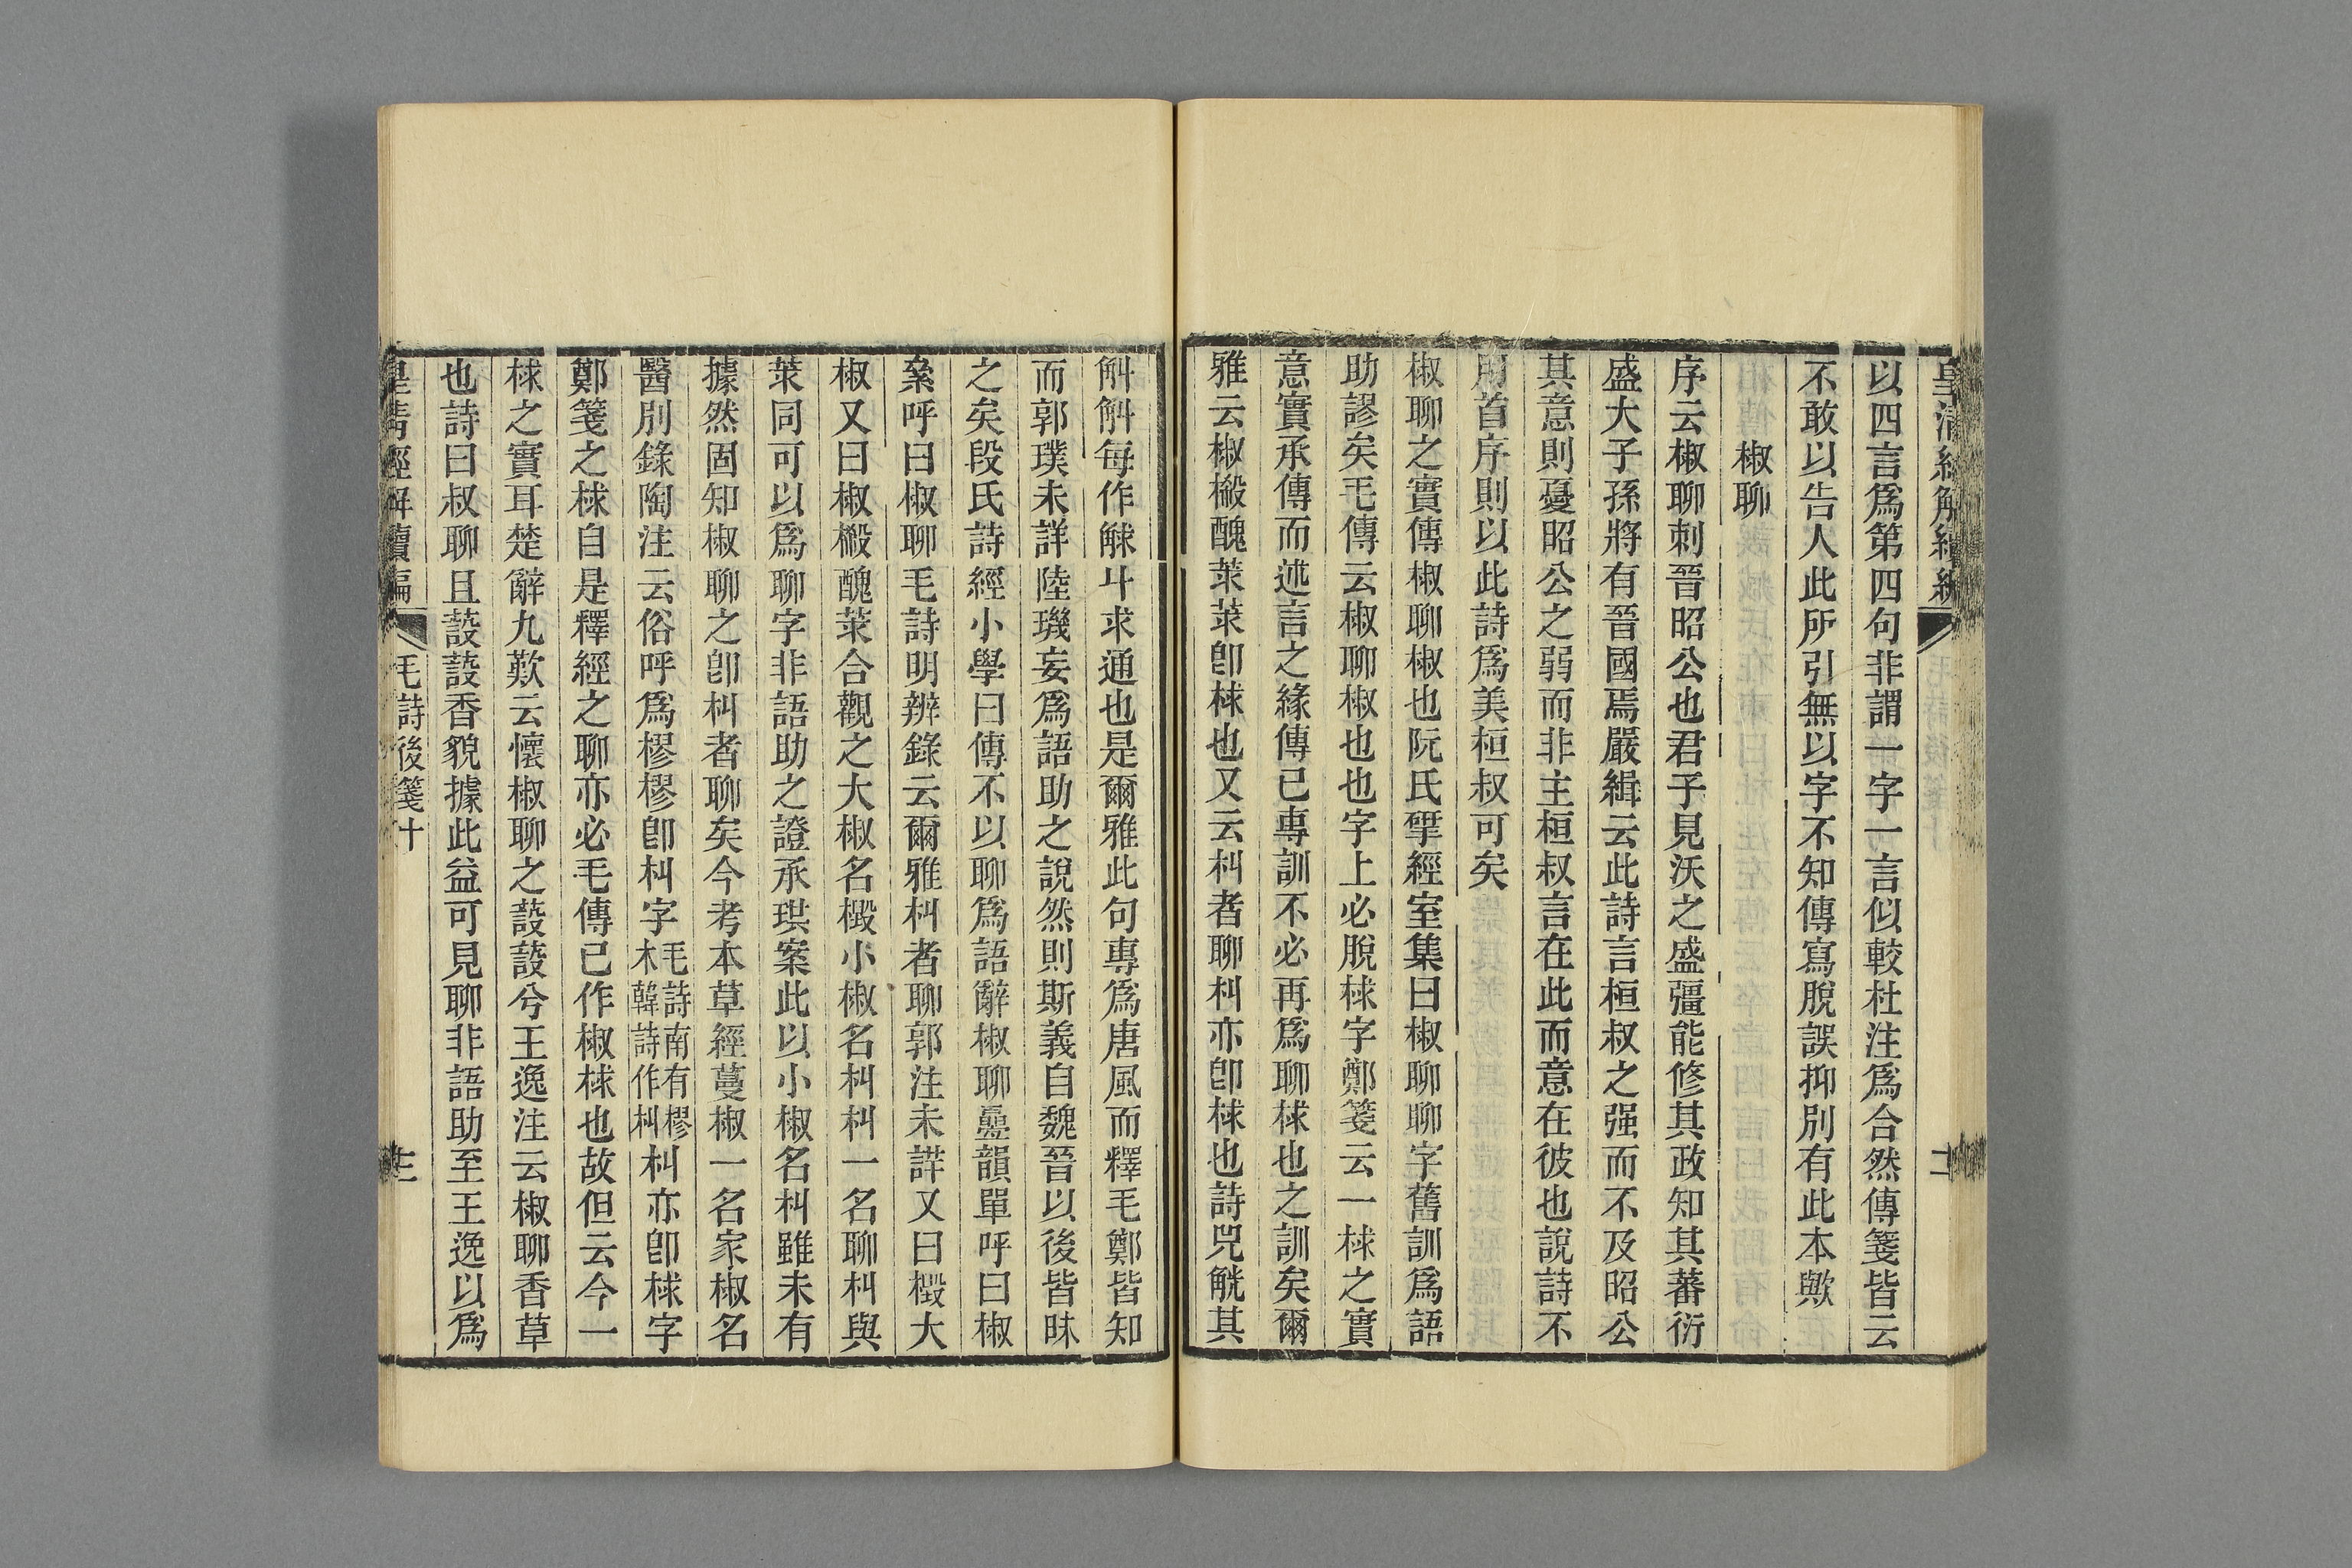 皇清經解續編
以四言爲第四句非謂一字一言似較杜注爲合然傳箋皆云
不敢以告人此所引無以字不知傳寫脫誤抑別有此本歟
椒聊
序云椒聊刺晉昭公也君子見沃之盛彊能修其政知其蕃衍
盛大子孫將有晉國焉嚴緝云此詩言桓叔之强而不及昭公
其意則憂昭公之弱而非主桓叔言在此而意在彼也說詩不
用首序則以此詩爲美桓叔可矣
椒聊之實傳椒聊椒也阮氏揅經室集曰椒聊聊字舊訓爲語
助謬矣毛傳云椒聊椒也也字上必脫梂字鄭箋云一梂之實
意實承傳而述言之緣傳已專訓不必再爲聊梂也之訓矣爾
雅云椒樧醜莍莍卽梂也又云朻者聊朻亦卽梂也詩兕觥其
斛斛每作觩斗求通也是爾雅此句專爲唐風而釋毛鄭皆知
而郭璞未詳陸璣妄爲語助之說然則斯義自魏晉以後皆昧
之矣段氏詩經小學曰傳不以聊爲語辭椒聊疊韻單呼曰椒
絫呼曰椒聊毛詩明辨錄云爾雅朻者聊郭注未詳又曰檓大
椒又曰椒樧醜莍合觀之大椒名檓小椒名朻朻一名聊朻與
莍同可以爲聊字非語助之證承珙案此以小椒名朻雖未有
據然固知椒聊之卽朻者聊矣今考本草經蔓椒一名家椒名
醫別錄陶注云俗呼爲樛樛卽朻字毛詩南有樛木韓詩作朻朻亦卽梂字
鄭箋之梂自是釋經之聊亦必毛傳已作椒梂也故但云今一
梂之實耳楚辭九歎云懷椒聊之蔎蔎兮王逸注云椒聊香草
也詩曰椒聊且蔎蔎香貌據此益可見聊非語助至王逸以爲
皇清經解續編
毛詩後箋十